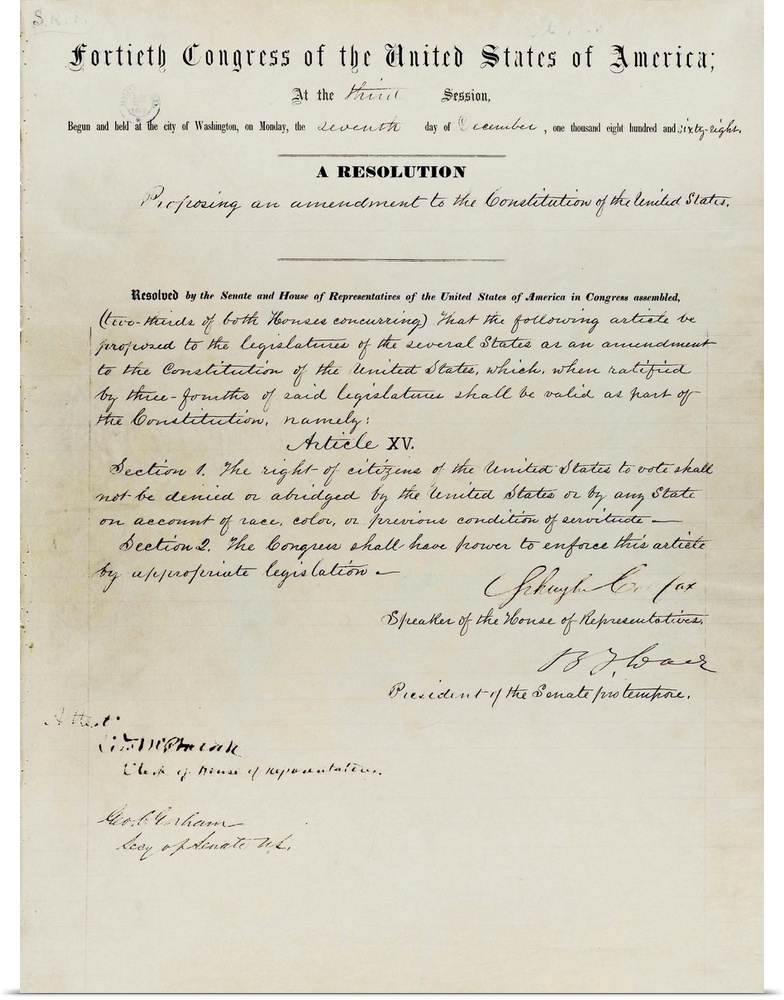 S.R.
Fortieth Congress of the United States of America;
At the third Session,
Begun and held at the city of Washington, on Monday, the seventh day of December, one thousand eight hundred and sixty-eight.
A RESOLUTION
Proposing an amendment to the Constitution of the United States.
Resolved by the Senate and House of Representatives of the United States of America in Congress assembled,
(two-thirds of both Houses concurring) That the following article be
proposed to the legislatures of the several States as an amendment
to the Constitution of the United States, which, when ratified
by three-fourths of said legislatures shall be valid as part of
the Constitution, namely:
Article XV.
Section 1. The right of citizens of the United States to vote shall
not be denied or abridged by the United States or by any State
on account of race, color, or previous condition of servitude—
Section 2. The Congress shall have power to enforce this article
by appropriate legislation—
Schuyler Colfax
Speaker of the House of Representatives.
B F Wade
President of the Senate pro tempore.
Attest:
Clerk of House of Representatives.
Geo. C. Gorham
Secy of Senate U.S.